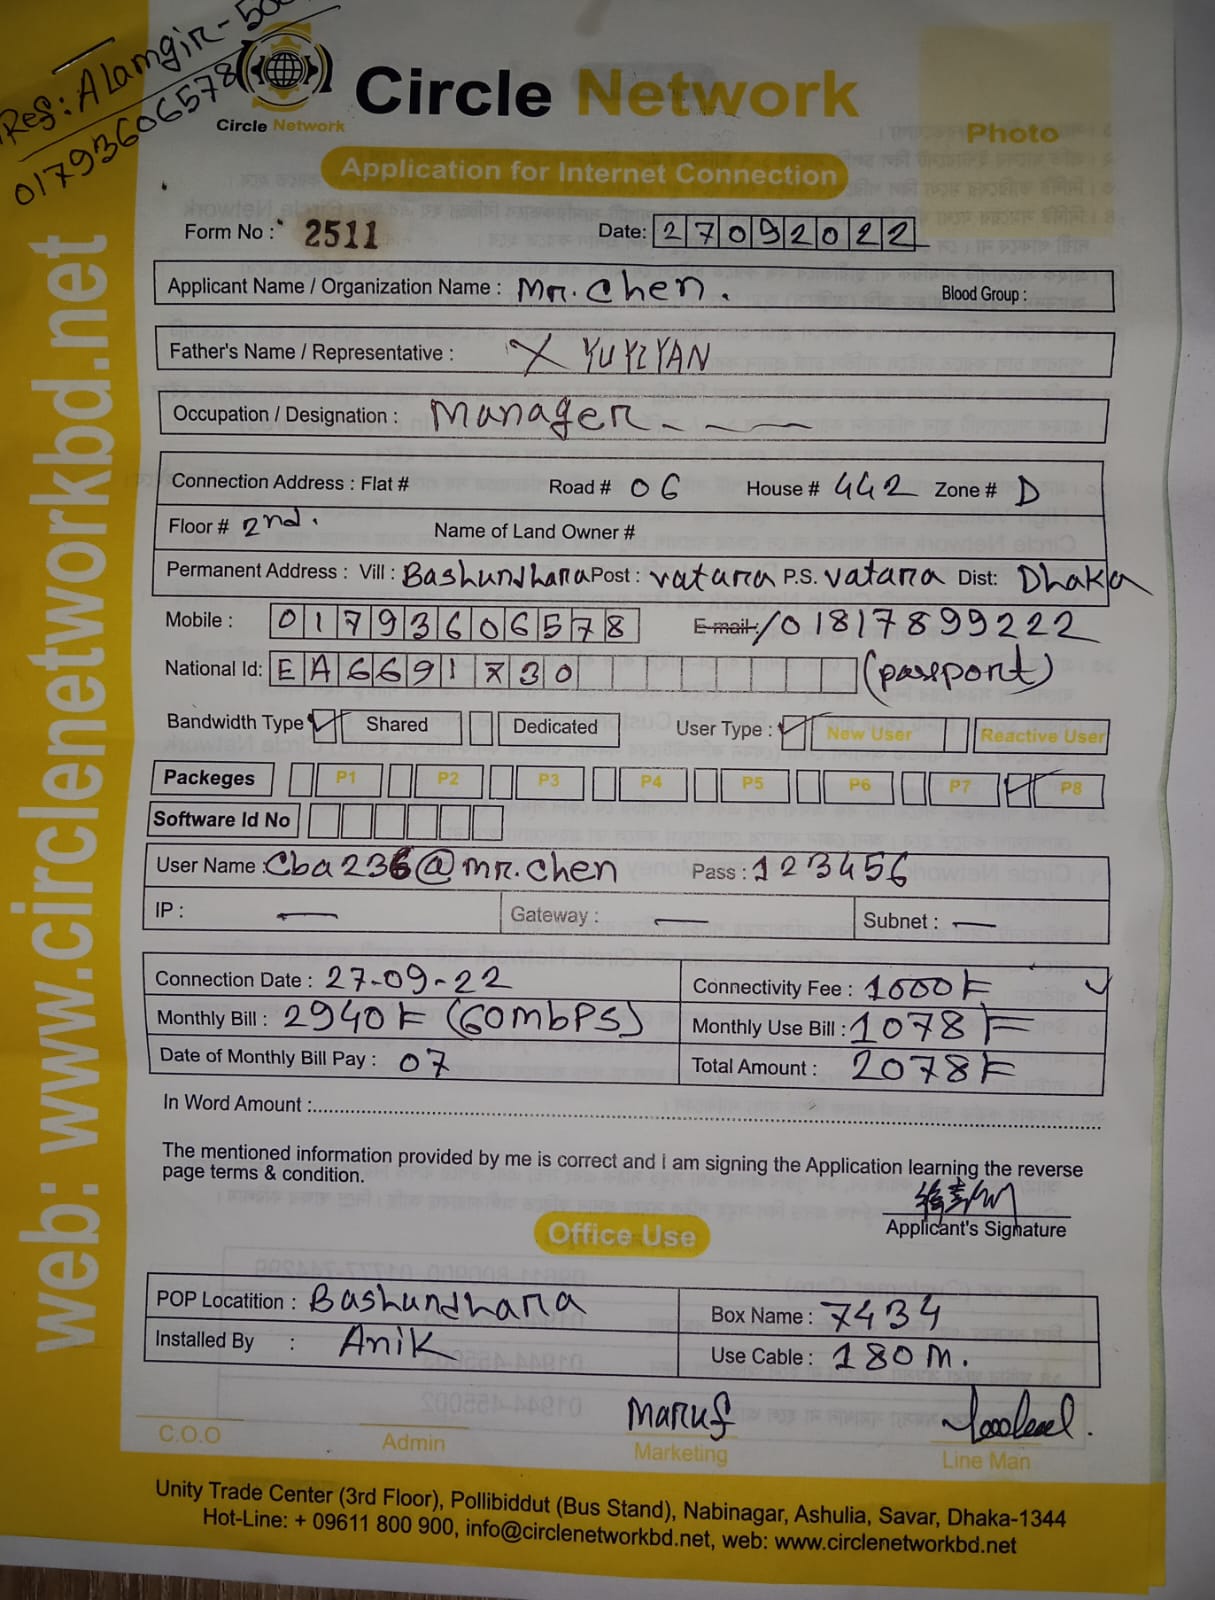 Ref: Alamgir - 50
01793606578
Circle Network
Circle Network
Photo
Application for Internet Connection
Form No : 2511 Date: 27092022
Applicant Name / Organization Name : Mr. Chen. Blood Group :
Father's Name / Representative : X YUYIYAN
Occupation / Designation : Manager
Connection Address : Flat # Road # 06 House # 442 Zone # D
Floor # 2nd. Name of Land Owner #
Permanent Address : Vill : Bashundhara Post : vatara P.S. vatara Dist: Dhaka
Mobile : 01793606578 E-mail: /01817899222
National Id: EA6691730 (passport)
Bandwidth Type Shared Dedicated User Type : New User Reactive User
Packeges P1 P2 P3 P4 P5 P6 P7 P8
Software Id No
User Name : Cba236@mr.chen Pass : 123456
IP : — Gateway : — Subnet : —
Connection Date : 27-09-22 Connectivity Fee : 1000
Monthly Bill : 2940 (60mbps) Monthly Use Bill : 1078
Date of Monthly Bill Pay : 07 Total Amount : 2078
In Word Amount :
The mentioned information provided by me is correct and I am signing the Application learning the reverse
page terms & condition.
Applicant's Signature
Office Use
POP Locatition : Bashundhara Box Name : 7434
Installed By : Anik Use Cable : 180 m.
Maruf
C.O.O Admin Marketing Line Man
Unity Trade Center (3rd Floor), Pollibiddut (Bus Stand), Nabinagar, Ashulia, Savar, Dhaka-1344
Hot-Line: + 09611 800 900, info@circlenetworkbd.net, web: www.circlenetworkbd.net
web: www.circlenetworkbd.net